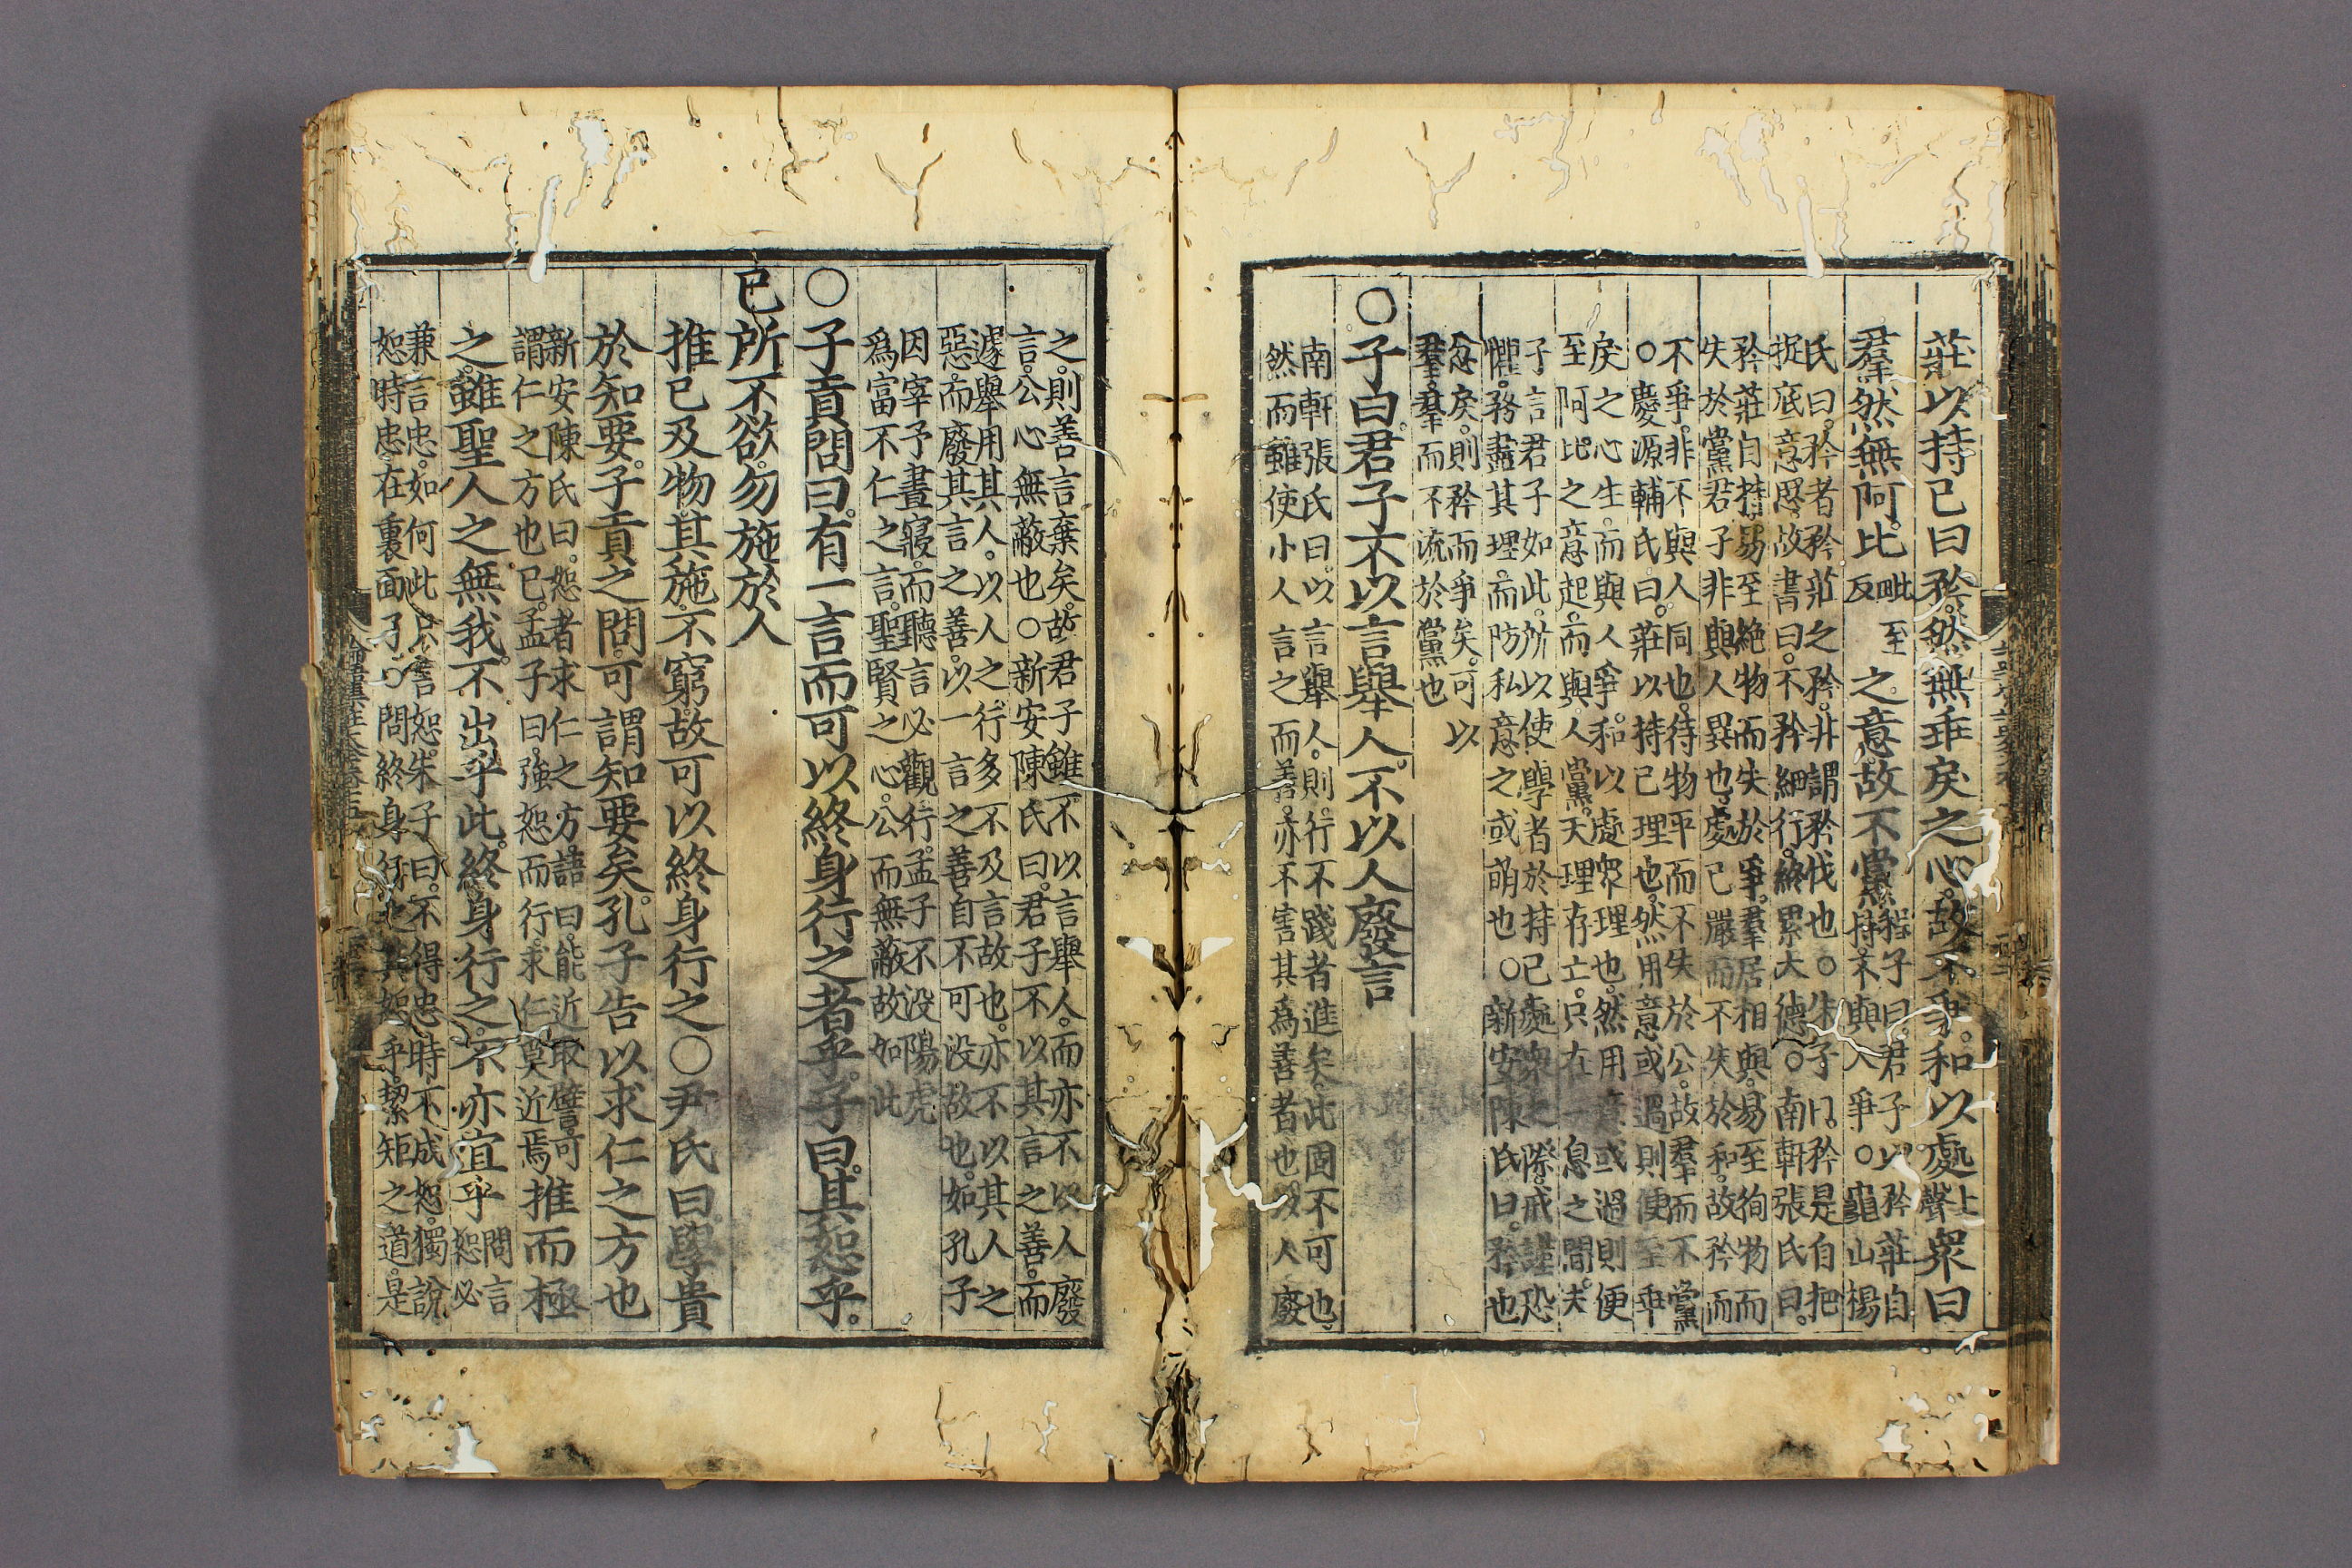 莊以持己曰矜。然無乖戾之心。故不爭。和以處聲上衆曰
羣。然無阿比毗至反之意。故不黨
程子曰。君子以矜莊自
持。不與人爭。○龜山楊
氏曰。矜者矜莊之矜。非謂矜伐也○朱子曰。矜是自把
捉底意思。故書曰。不矜細行。終累大德○南軒張氏曰。
矜莊自持。易至絶物而失於爭。羣居相與。易至徇物而
失於黨。君子非與人異也。處己嚴而不失於和。故矜而
不爭。非不與人同也。待物平而不失於公。故羣而不黨
○慶源輔氏曰。莊以持己理也。然用意或過則便至乖
戾之心生。而與人爭。和以處衆理也。然用意或過則便
至阿比之意起。而與人黨。天理存亡。只在一息之間。夫
子言君子如此。所以使學者於持己處衆之際。戒謹恐
懼。務盡其理。而防私意之或萌也○新安陳氏曰。矜也
忿戾。則矜而爭矣。可以
羣。羣而不流於黨也
○子曰。君子不以言舉人。不以人廢言
南軒張氏曰。以言舉人。則行不踐者進矣。此固不可也。
然而雖使小人言之而善。亦不害其爲善者也。以人廢
之。則善言棄矣。故君子雖不以言舉人。而亦不以人廢
言。公心無蔽也○新安陳氏曰。君子不以其言之善。而
遽舉用其人。以人之行多不及言故也。亦不以其人之
惡。而廢其言之善。以一言之善自不可沒故也。如孔子
因宰予晝寢。而聽言必觀行。孟子不沒陽虎
爲富不仁之言。聖賢之心。公而無蔽故如此
○子貢問曰。有一言而可以終身行之者乎。子曰。其恕乎。
己所不欲。勿施於人
推己及物。其施不窮。故可以終身行之○尹氏曰學貴
於知要。子貢之問。可謂知要矣。孔子告以求仁之方也
新安陳氏曰。恕者求仁之方。語曰。能近取譬。可
謂仁之方也已。孟子曰。強恕而行。求仁莫近焉
推而極
之。雖聖人之無我。不出乎此。終身行之。不亦宜乎
問言
恕必
兼言忠。如何此只言恕。朱子曰。不得忠時不成恕。獨說
恕時忠在裏面了○問終身行之其恕乎。絜矩之道。是